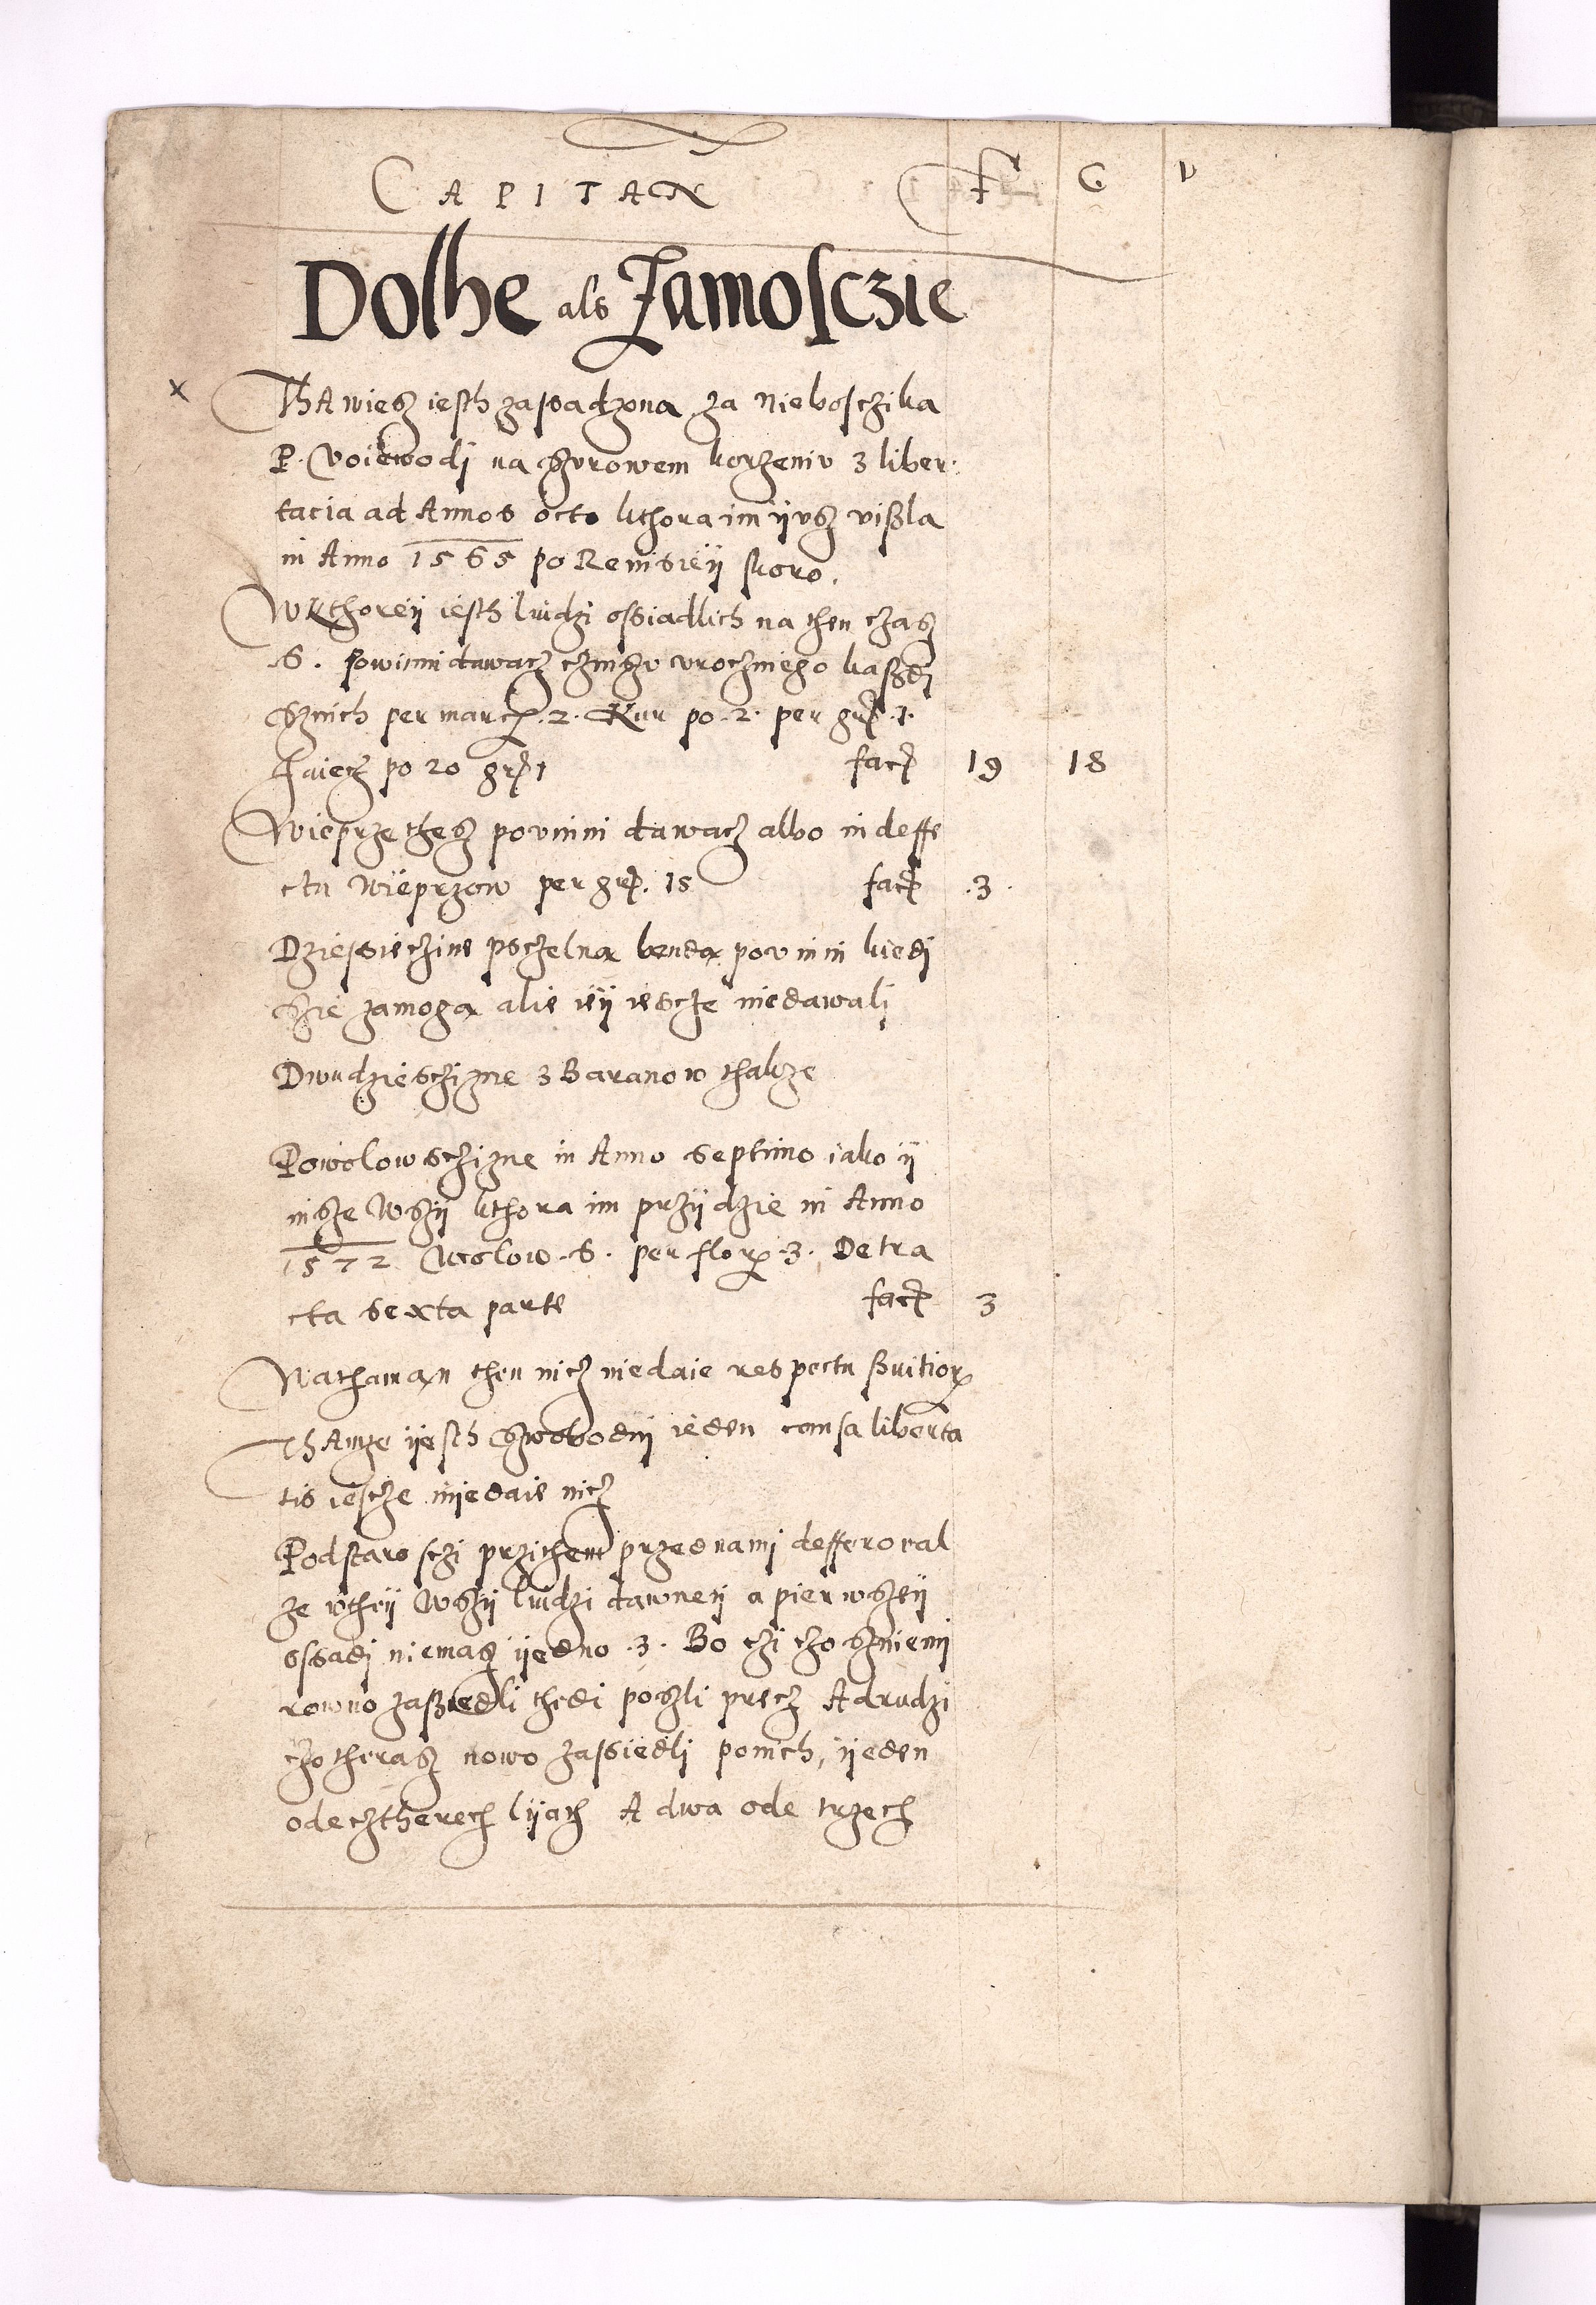 CAPITAN F G D
Dolhe als Zamosczie
x Tha wiesz iesth zasadzona za Nieboschika
P. Voiewodj na szurowem korzeniu z liber
tacia ad Annos octo kthora im ijusz vissla
in Anno 1565 po Remisieij skoro.
W kthoreij iesth liudzi ossiadlich na then czasz
6. Powinni dawacz czinszu uroczniego kaszdj
sznich per marcas. 2. Kur po 2. per gr. 1.
Jaiecz po 20 gr 1 fact 19 18
Wieprze thesz powinni dawacz albo in deffe
ctu Wieprzow per gr. 15 fact .3.
Dziessieczine pschelna benda powinni kiedj
szie zamoga alie ieij iescze niedawalj
Dwudzieschizne z Baranow thakze
Powolowschizne in Anno septimo iako ij
insze Wszij kthora im przijdzie in Anno
1572 Wolow .6. per flor. 3. Detra
cta sexta parte fact 3
Wathaman then nicz niedaie respectu servitior
Thamze ijesth szwobodnj ieden causa liberta
tis iescze nijedaie nicz
Podstaroschi przithem przednami defferoval
ze wtheij Wszij liudzi dawneij a pierwszeij
ossadj niemasz ijedno .3. Bo czi czo szniemj
rowno zassiedli thedi poszli precz A drudzi
czo therasz nowo zassiedlj ponich, ijeden
odecztherech lijath A dwa ode trzech